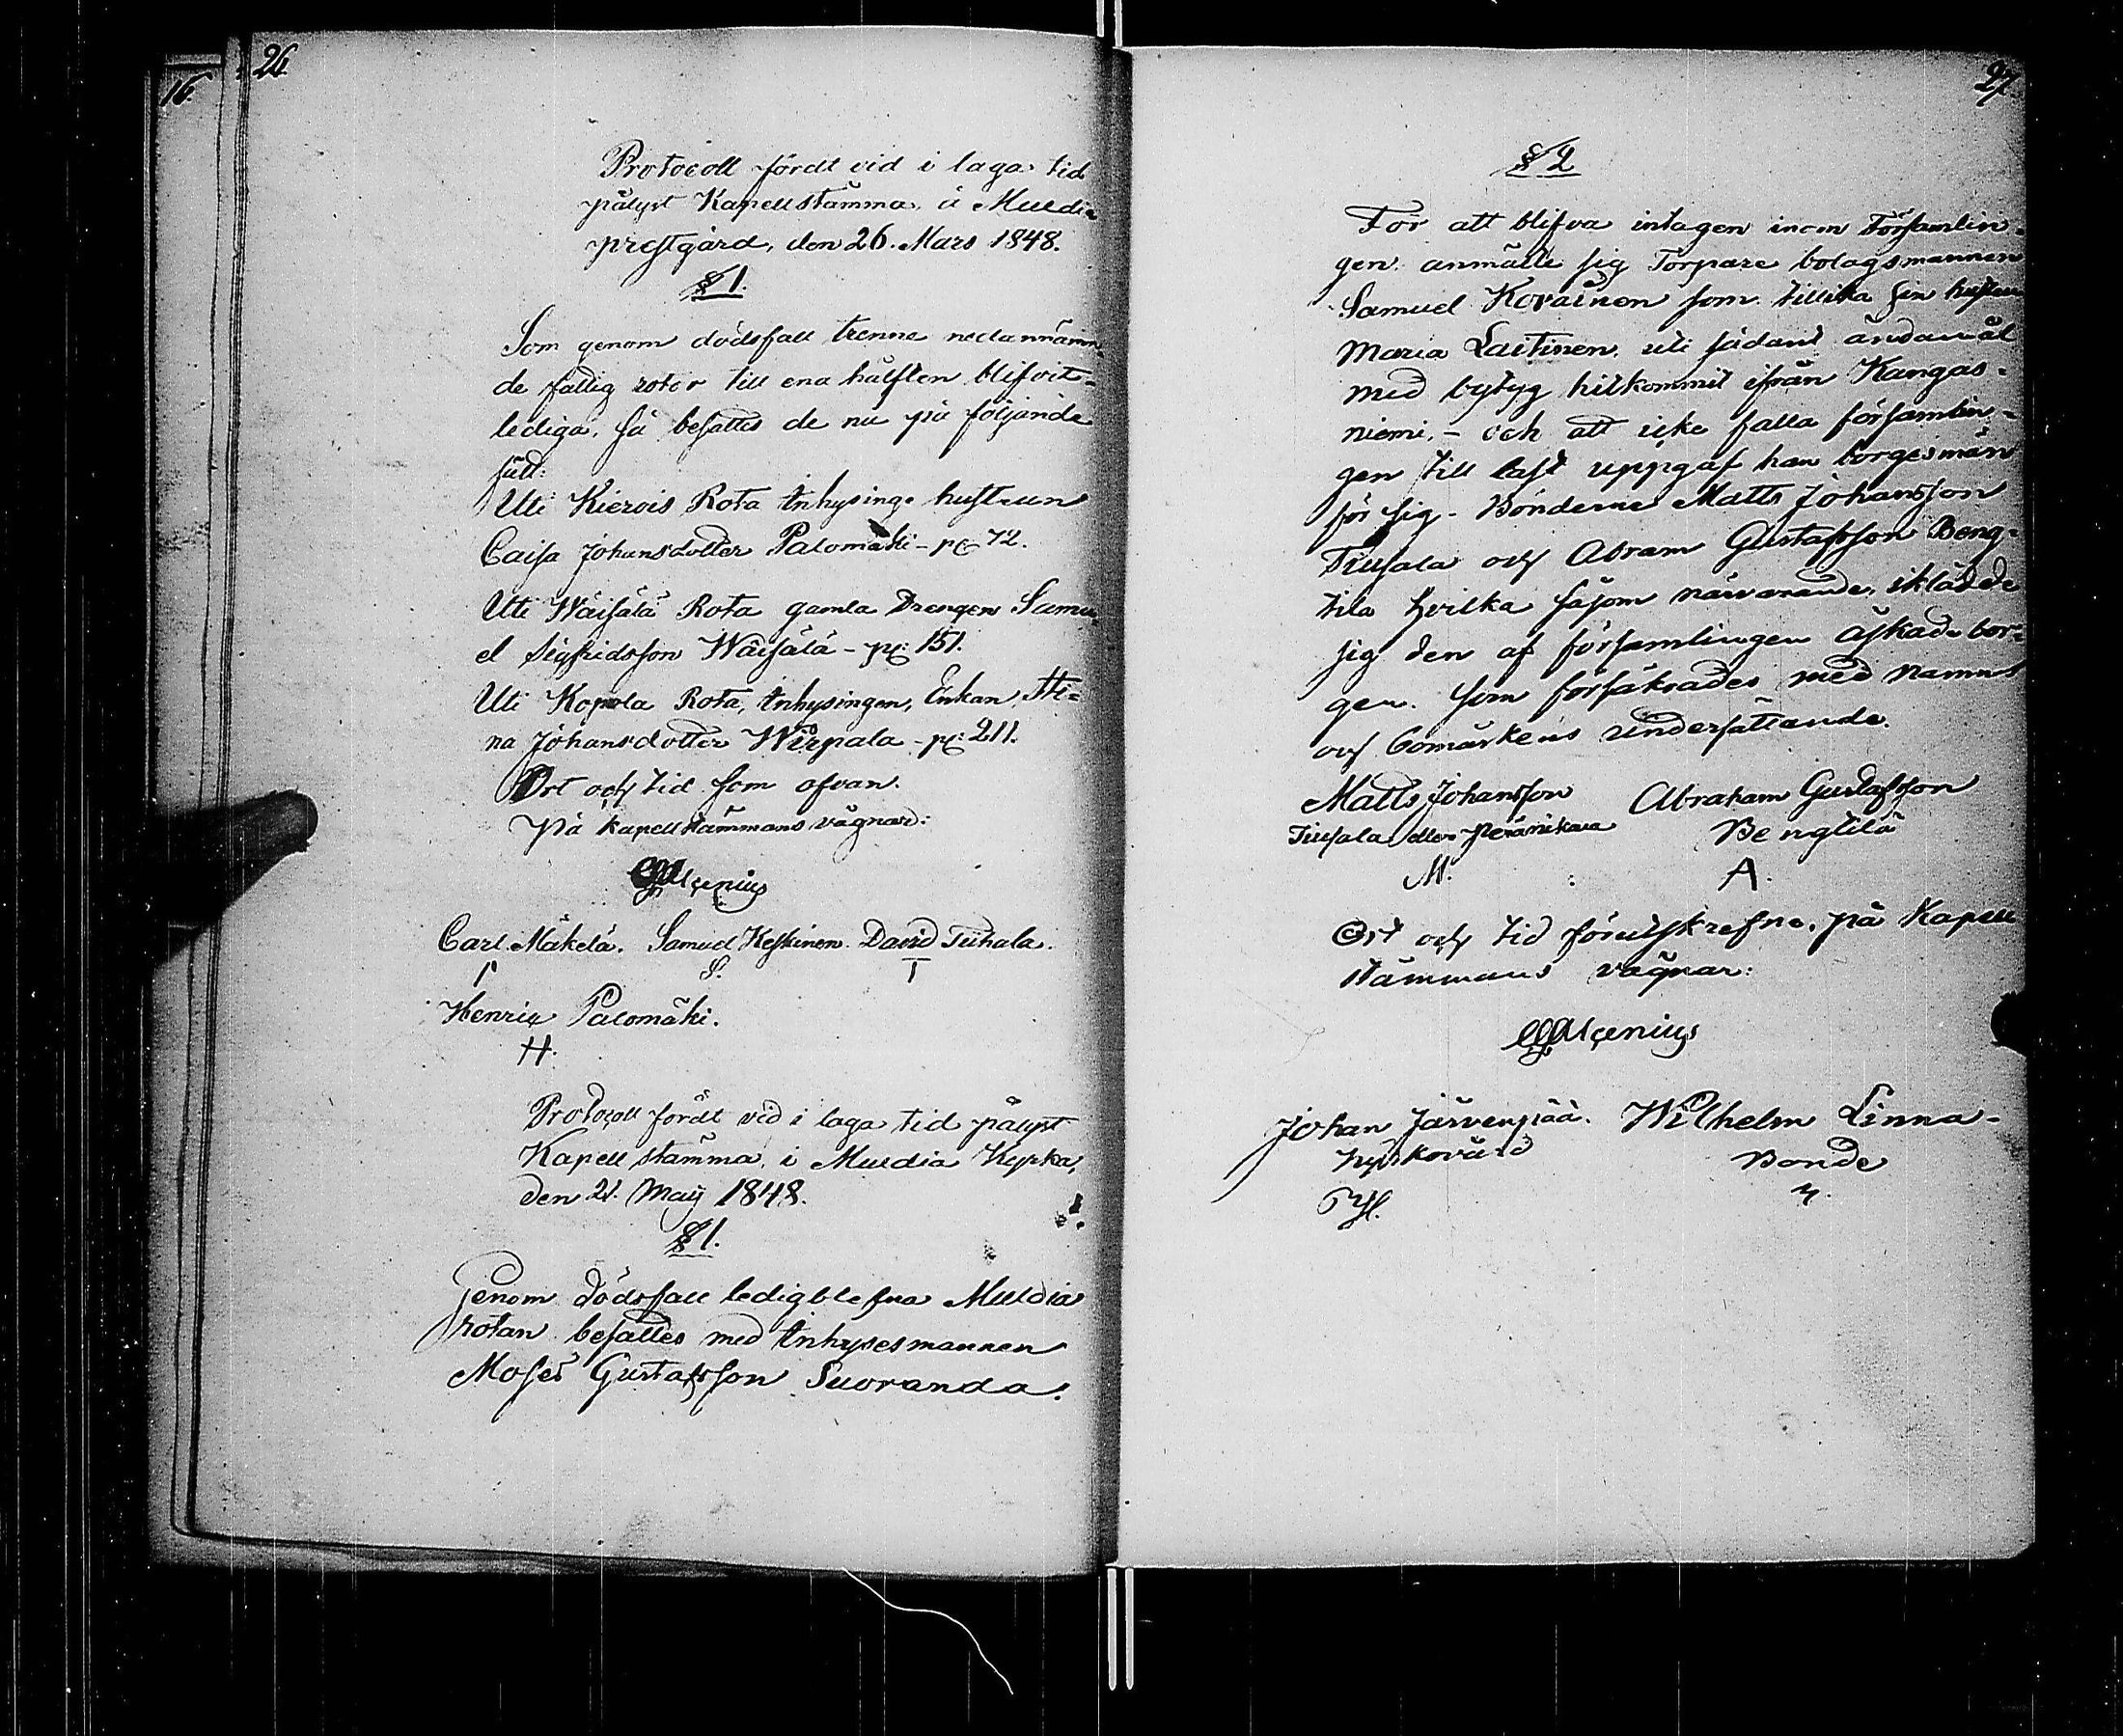 16.
26.
Protocoll fördt vid i laga tid
pålyst Kapellstämma, å Muldia
prestgård, den 26. Mars 1848.
§ 1.
Som genom dödsfall trenne nedannämn-
de fattig rotor till ena hälften blifvit
lediga, så besattes de nu på följande
sätt:
Uti Kierois Rota Inhysings hustrun
Caisa Johansdotter Palomäki - p: 72.
Uti Wäisälä Rota gamla Drengen Samu-
el Sigfridsson Wäisälä - p: 151.
Uti Kopola Rota, Inhysingen, Enkan Sti-
na Johansdotter Wirpala - p: 211.
Ort och tid som ofvan.
På kapellstämmans vägnar:
Carl Mäkelä. Samuel Keskinen. David Tiihala.
S. T
Henric Palomäki.
H.
Protocoll fördt vid i laga tid pålyst
Kapell stämma, i Muldia Kyrka,
den 21. Maij 1848.
§ 1.
Genom dödsfall ledigblefna Muldia
rotan besattes med Inhysesmannen
Moses Gustafsson Suoranda.
27
§ 2
För att blifva intagen inom Församlin-
gen anmälte sig Torpare bolagsmannen
Samuel Kovainen som tillika sin hustru
Maria Laitinen, uti sådant ändamål
med betyg hitkommit ifrån Kangas-
niemi, - och att icke falla församlin-
gen till last uppgaf han borgesmän
för sig - Bönderne Matts Johansson
Tiusala och Abram Gustafsson Beng-
tila hvilka såsom närvarande, iklädde
sig den af församlingen äskade bor-
gen. som försäkrades med namns
och bomärkens undersättande.
Matts Johansson Abraham Gustafsson
Tiusala eller Benglilä
M. A.
Ort och tid förutskrefne, på Kapell
stämmans vägnar:
Johan Järvenpää. Wilhelm Linna-
Kyrkovärd Bonde